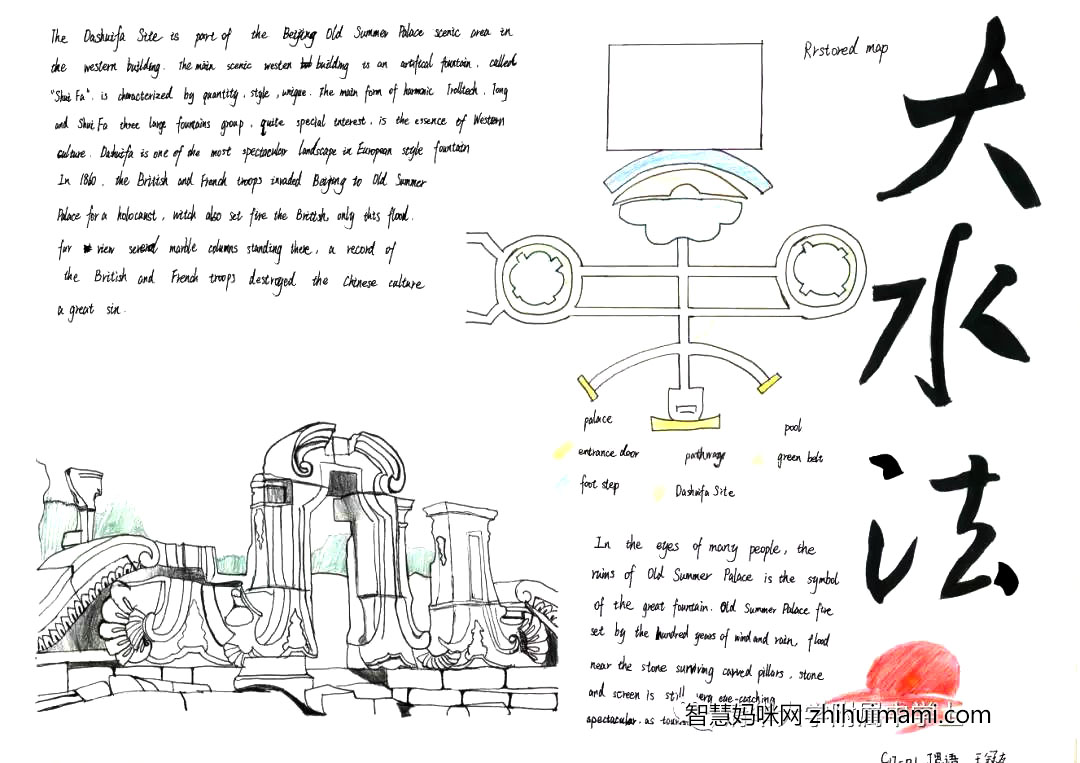 The Dashuifa Site is part of the Beijing Old Summer Palace scenic area in
the western building. The main scenic westen building is an artifical fountain, called
"Shui Fa". is characterized by quantity, style, unique. The main form of harmonic Trolltech, Tang
and Shui Fa three large fountains group, quite special interest, is the essence of Western
culture. Dahuifa is one of the most spectacular landscape in European style fountain
In 1860, the British and French troops invaded Beijing to Old Summer
Palace for a holocanst, witch also set fire the British, only this flood.
fur view several marble columns standing there, a record of
the British and French troops destroyed the Chinese culture
a great sin.
Rrstored map
大水法
palace
pool
entrance door
pathway
green belt
foot step
Dashuifa Site
In the eyes of many people, the
ruins of Old Summer Palace is the symbol
of the great fountain. Old Summer Palace fire
set by the hundred years of wind and rain, flood
near the stone surviving carved pillars, stone
and screen is still very eye-caching
spectacular. as
智慧妈咪网 zhihuimami.com